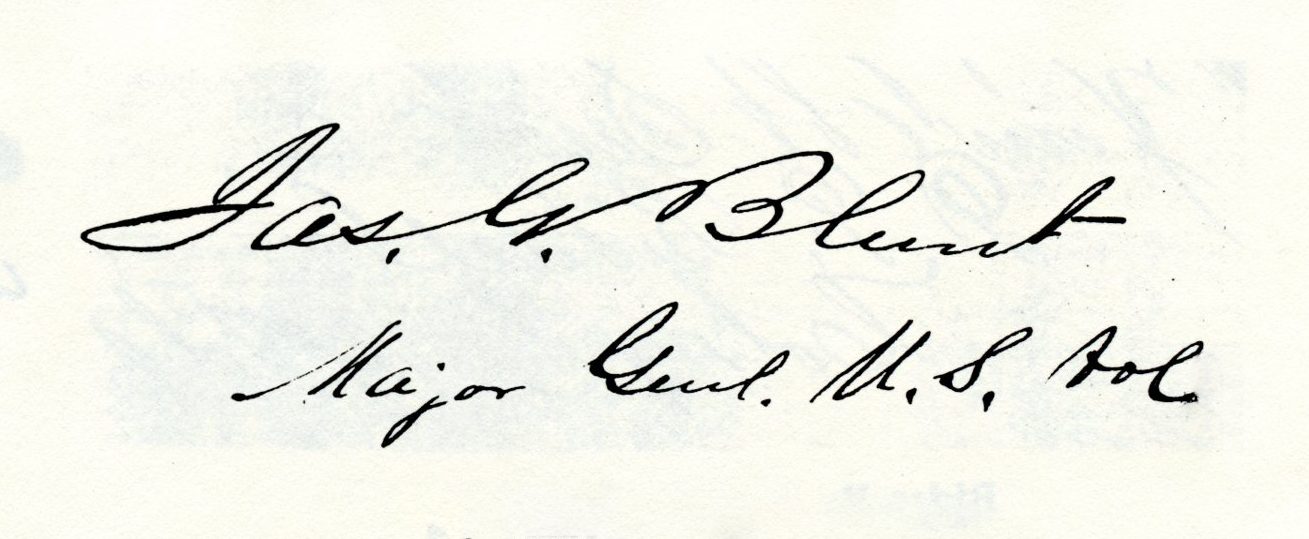 Jas. G. Blunt
Major Genl. U.S. Vol